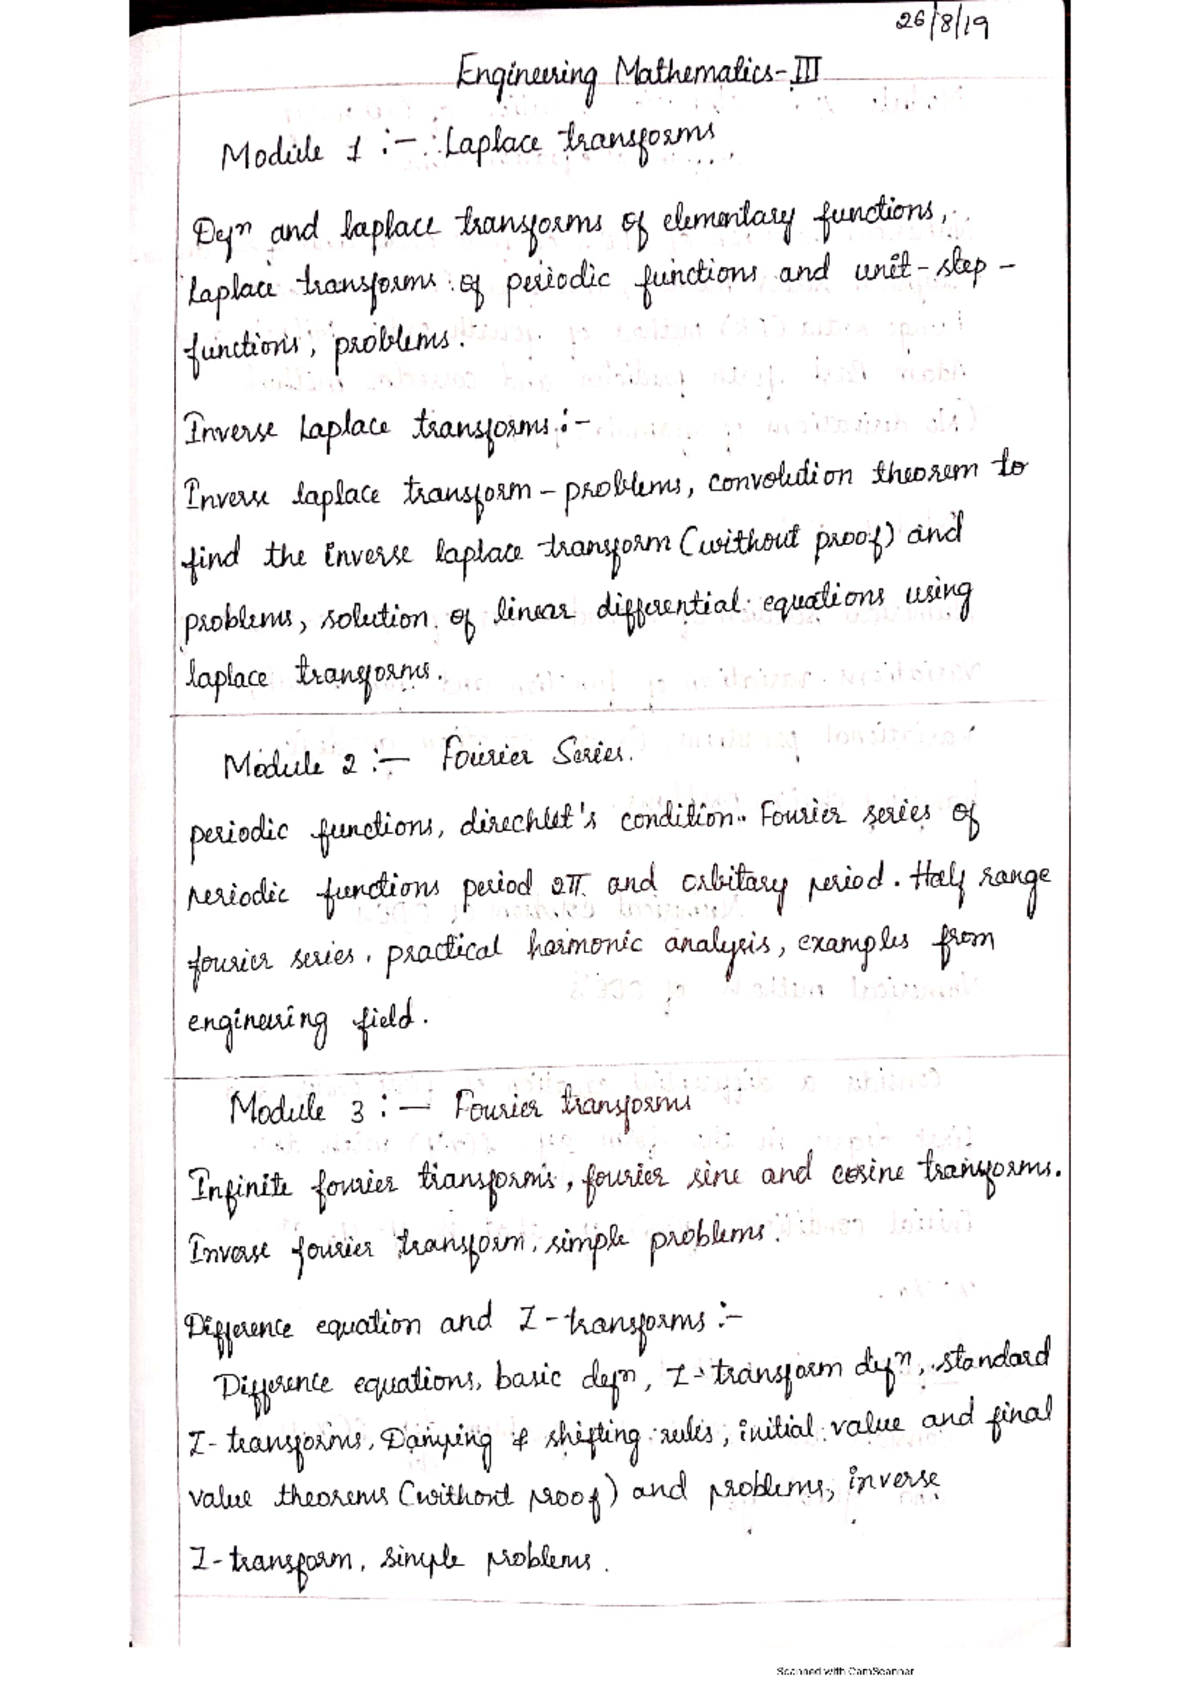 26/8/19
Engineering Mathematics-III
Module 1 :- Laplace transforms
Defⁿ and laplace transforms of elementary functions,
Laplace transforms of periodic functions and unit-step-
functions, problems.
Inverse Laplace transforms :-
Inverse laplace transform - problems, convolution theorem to
find the inverse laplace transform (without proof) and
problems, solution of linear differential equations using
laplace transforms.
Module 2 :- Fourier Series.
periodic functions, direchlet's condition. Fourier series of
periodic functions period 2π and orbitary period. Half range
fourier series. practical harmonic analysis, examples from
engineering field.
Module 3 :- Fourier transforms
Infinite fourier transforms, fourier sine and cosine transforms.
Inverse fourier transform. simple problems.
Difference equation and Z-transforms :-
Difference equations, basic defⁿ, Z-transform defⁿ, standard
Z-transforms, Damping & shifting rules, initial value and final
value theorems (without proof) and problems, inverse
Z-transform, simple problems.
Scanned with CamScanner